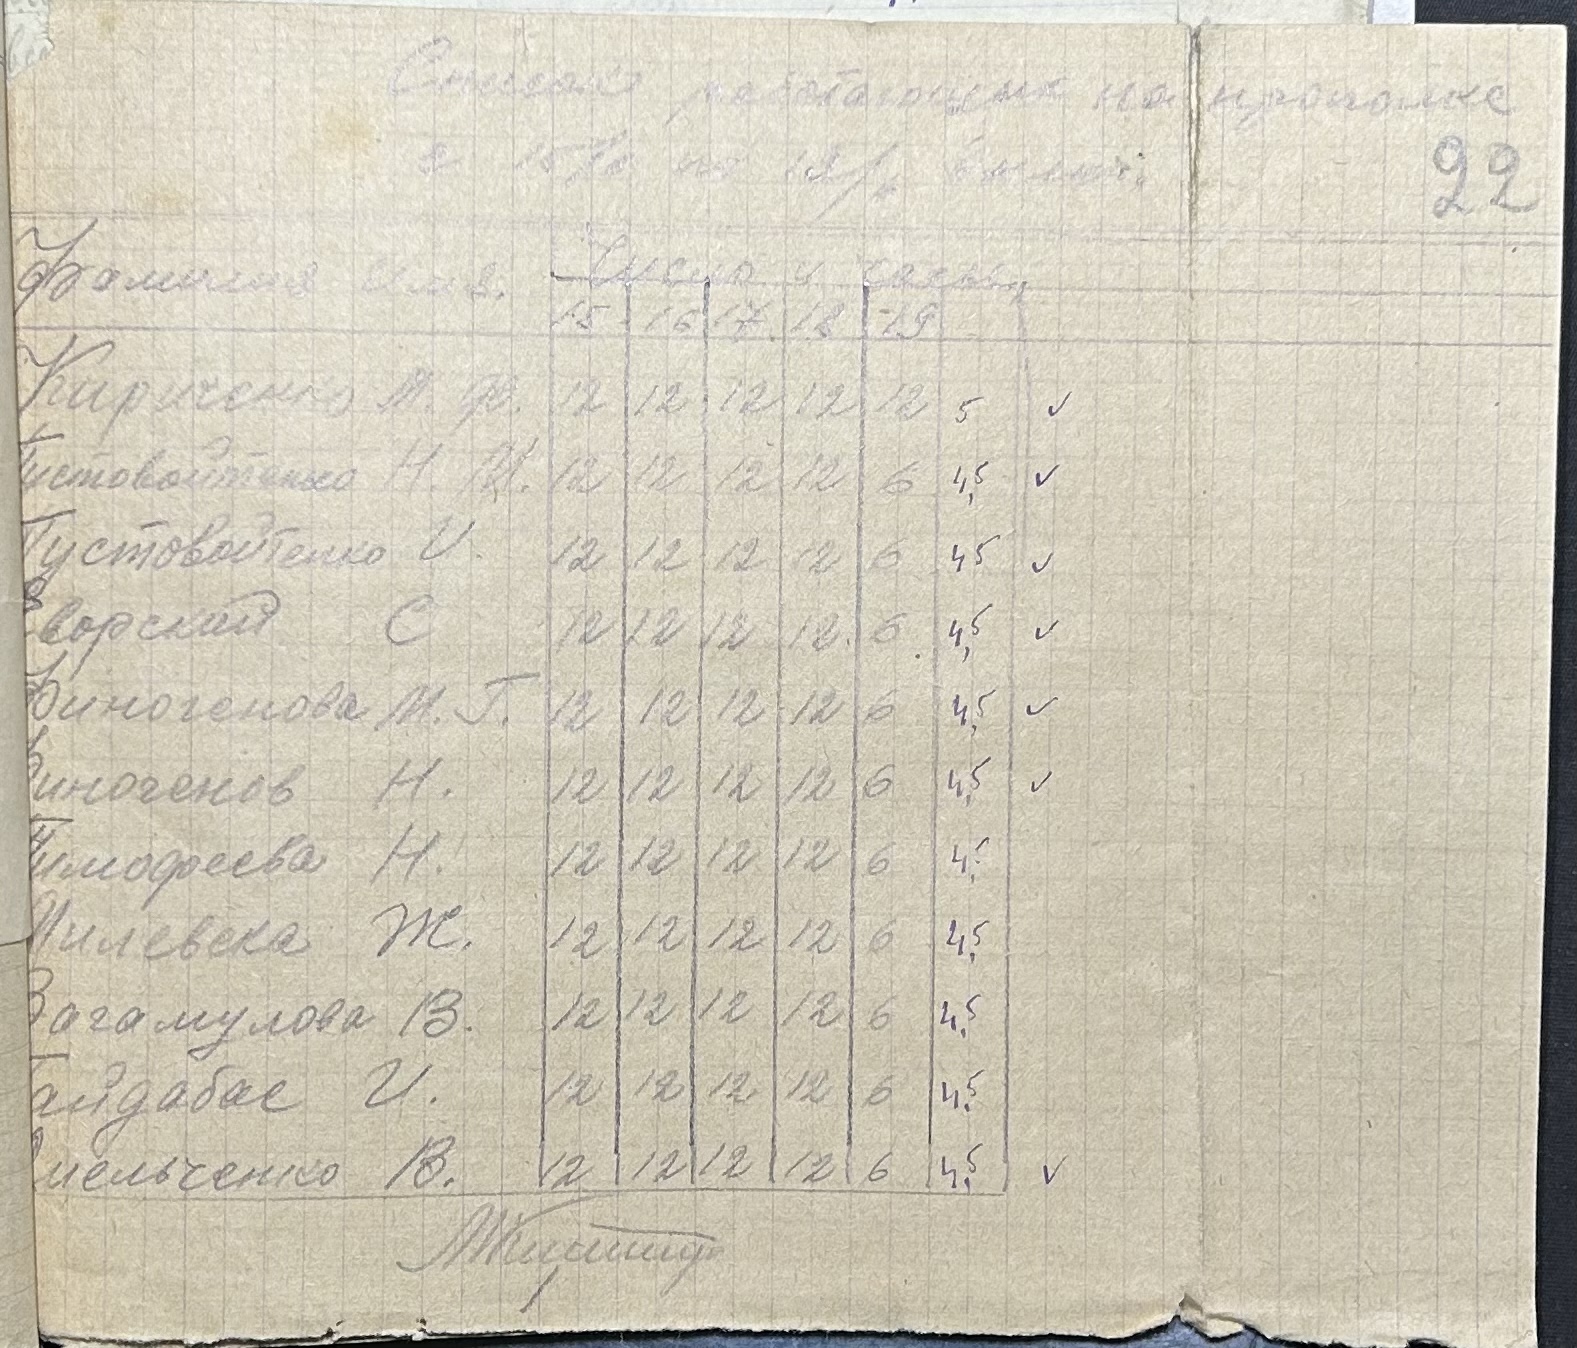 Список работающих на прополке
с 15/ по 19/ включ.
22
Фамилия Имя. Число и часы
15 16 17 18 19
Кириченко М. Ф. 12 12 12 12 12 5 ✓
Пустовойтенко Н. И. 12 12 12 12 6 4,5 ✓
Пустовойтенко И. 12 12 12 12 6 4,5 ✓
Яворский С 12 12 12 12 6 4,5 ✓
Финогенова М. Г. 12 12 12 12 6 4,5 ✓
Финогенов Н. 12 12 12 12 6 4,5 ✓
Тимофеева Н. 12 12 12 12 6 4,5
Милевска Ж. 12 12 12 12 6 4,5
Загамулова В. 12 12 12 12 6 4,5
Гайдабас И. 12 12 12 12 6 4,5
Омельченко В. 12 12 12 12 6 4,5 ✓